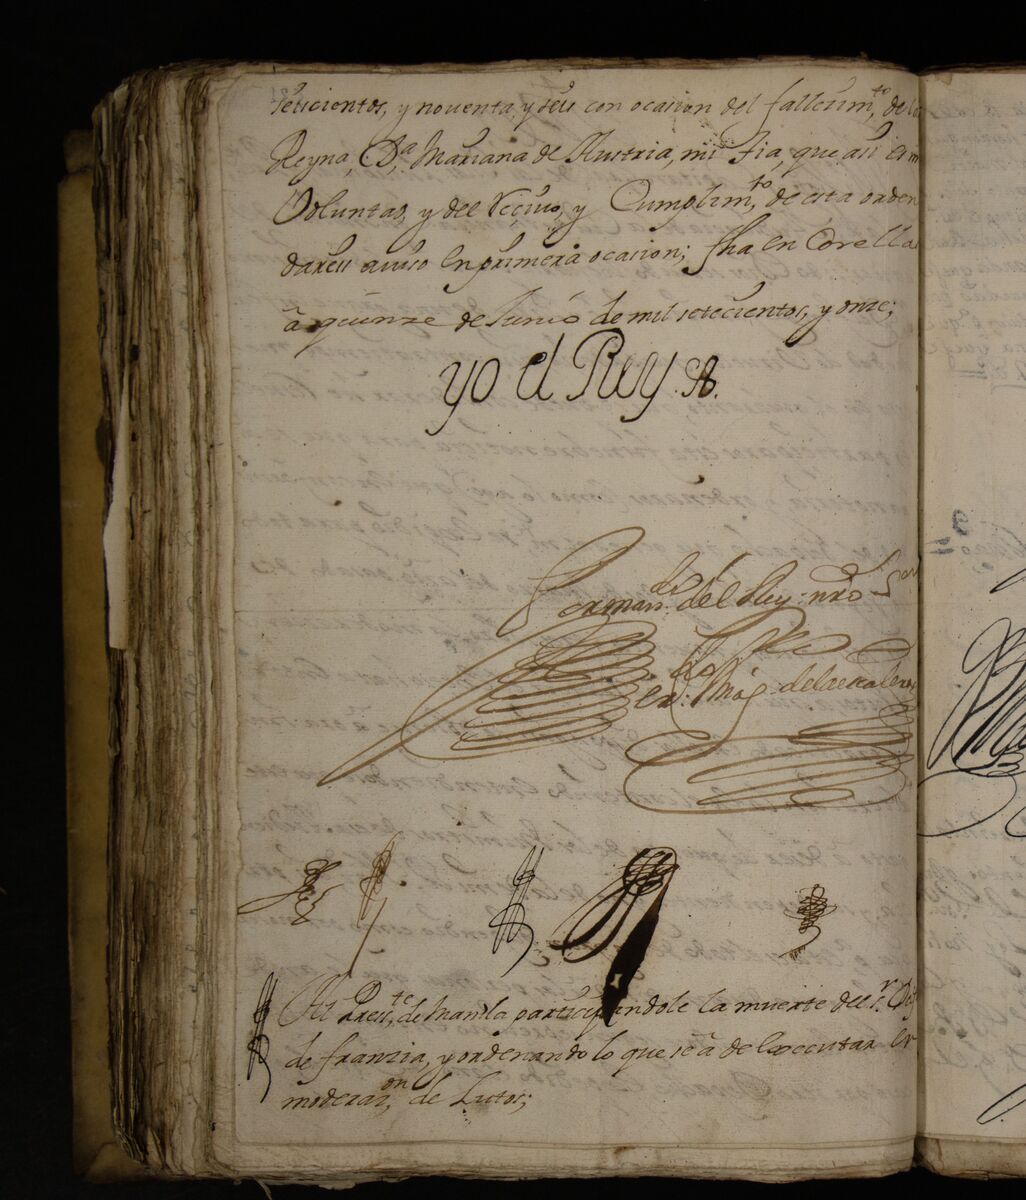 seiscientos, y noventa, y seis con ocasion del fallecim.to, de la
Reyna, D.a, Mariana de Austria, mi Tia, que asi es m
Voluntad, y del Recivo, y Cumplim.to, de esta orden
dareis aviso en primera ocasion; fha en Corella
à quinze de Junio de mil setecientos, y onze;
yo el Rey
Por man.do del Rey nro S.or
de la
Al Presid.te, de Manila participandole la muerte del s.r
de franzia, y ordenandolo que se à de executar en
moderaz.on, de Lutos;